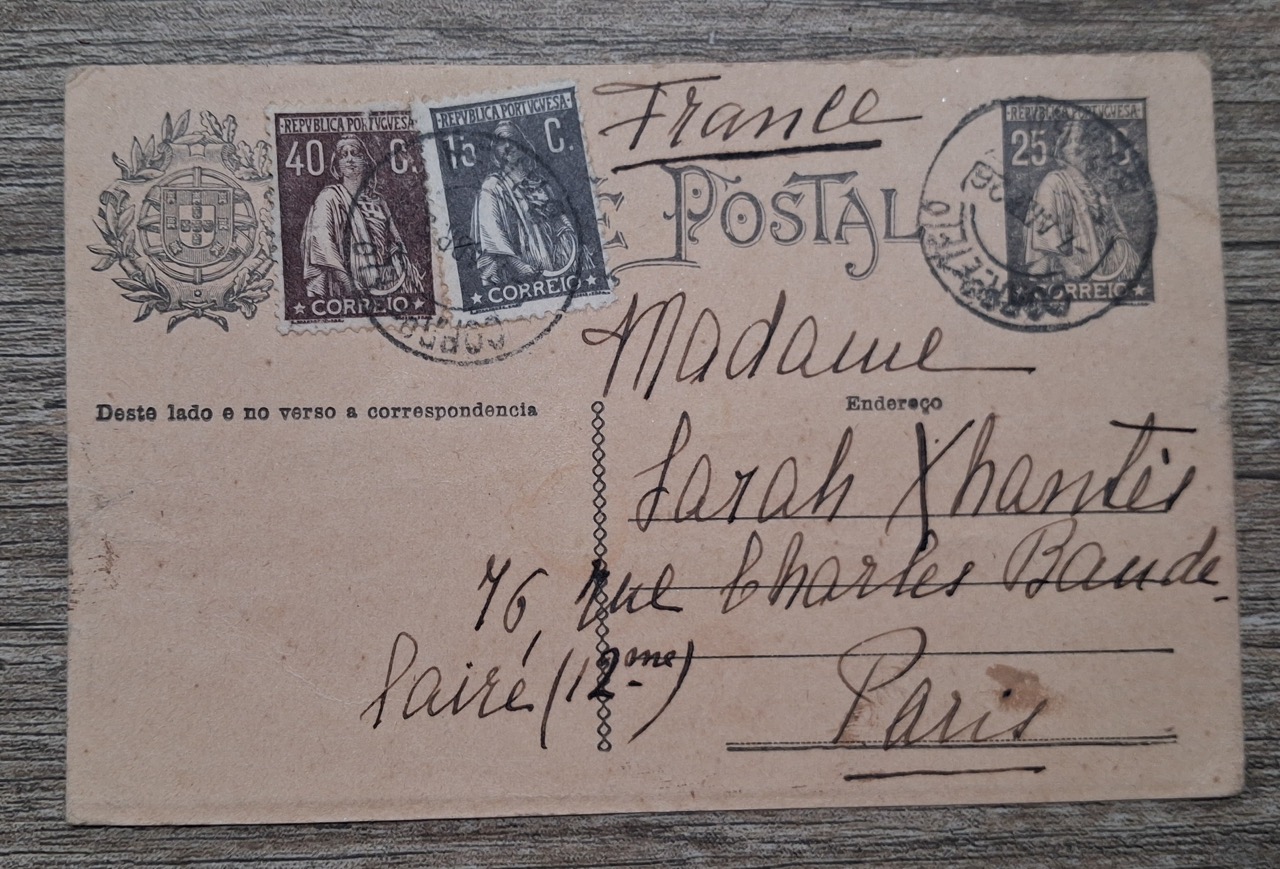 REPVBLICA PORTVGVESA
40 C.
CORREIO
REPVBLICA PORTVGVESA
15 C.
CORREIO
France
E POSTAL
REPVBLICA PORTVGVESA
25 C.
CORREIO
Deste lado e no verso a correspondencia
Endereço
Madame
Sarah Xhantès
76, rue Charles Baude-
lairé (12me)
Paris